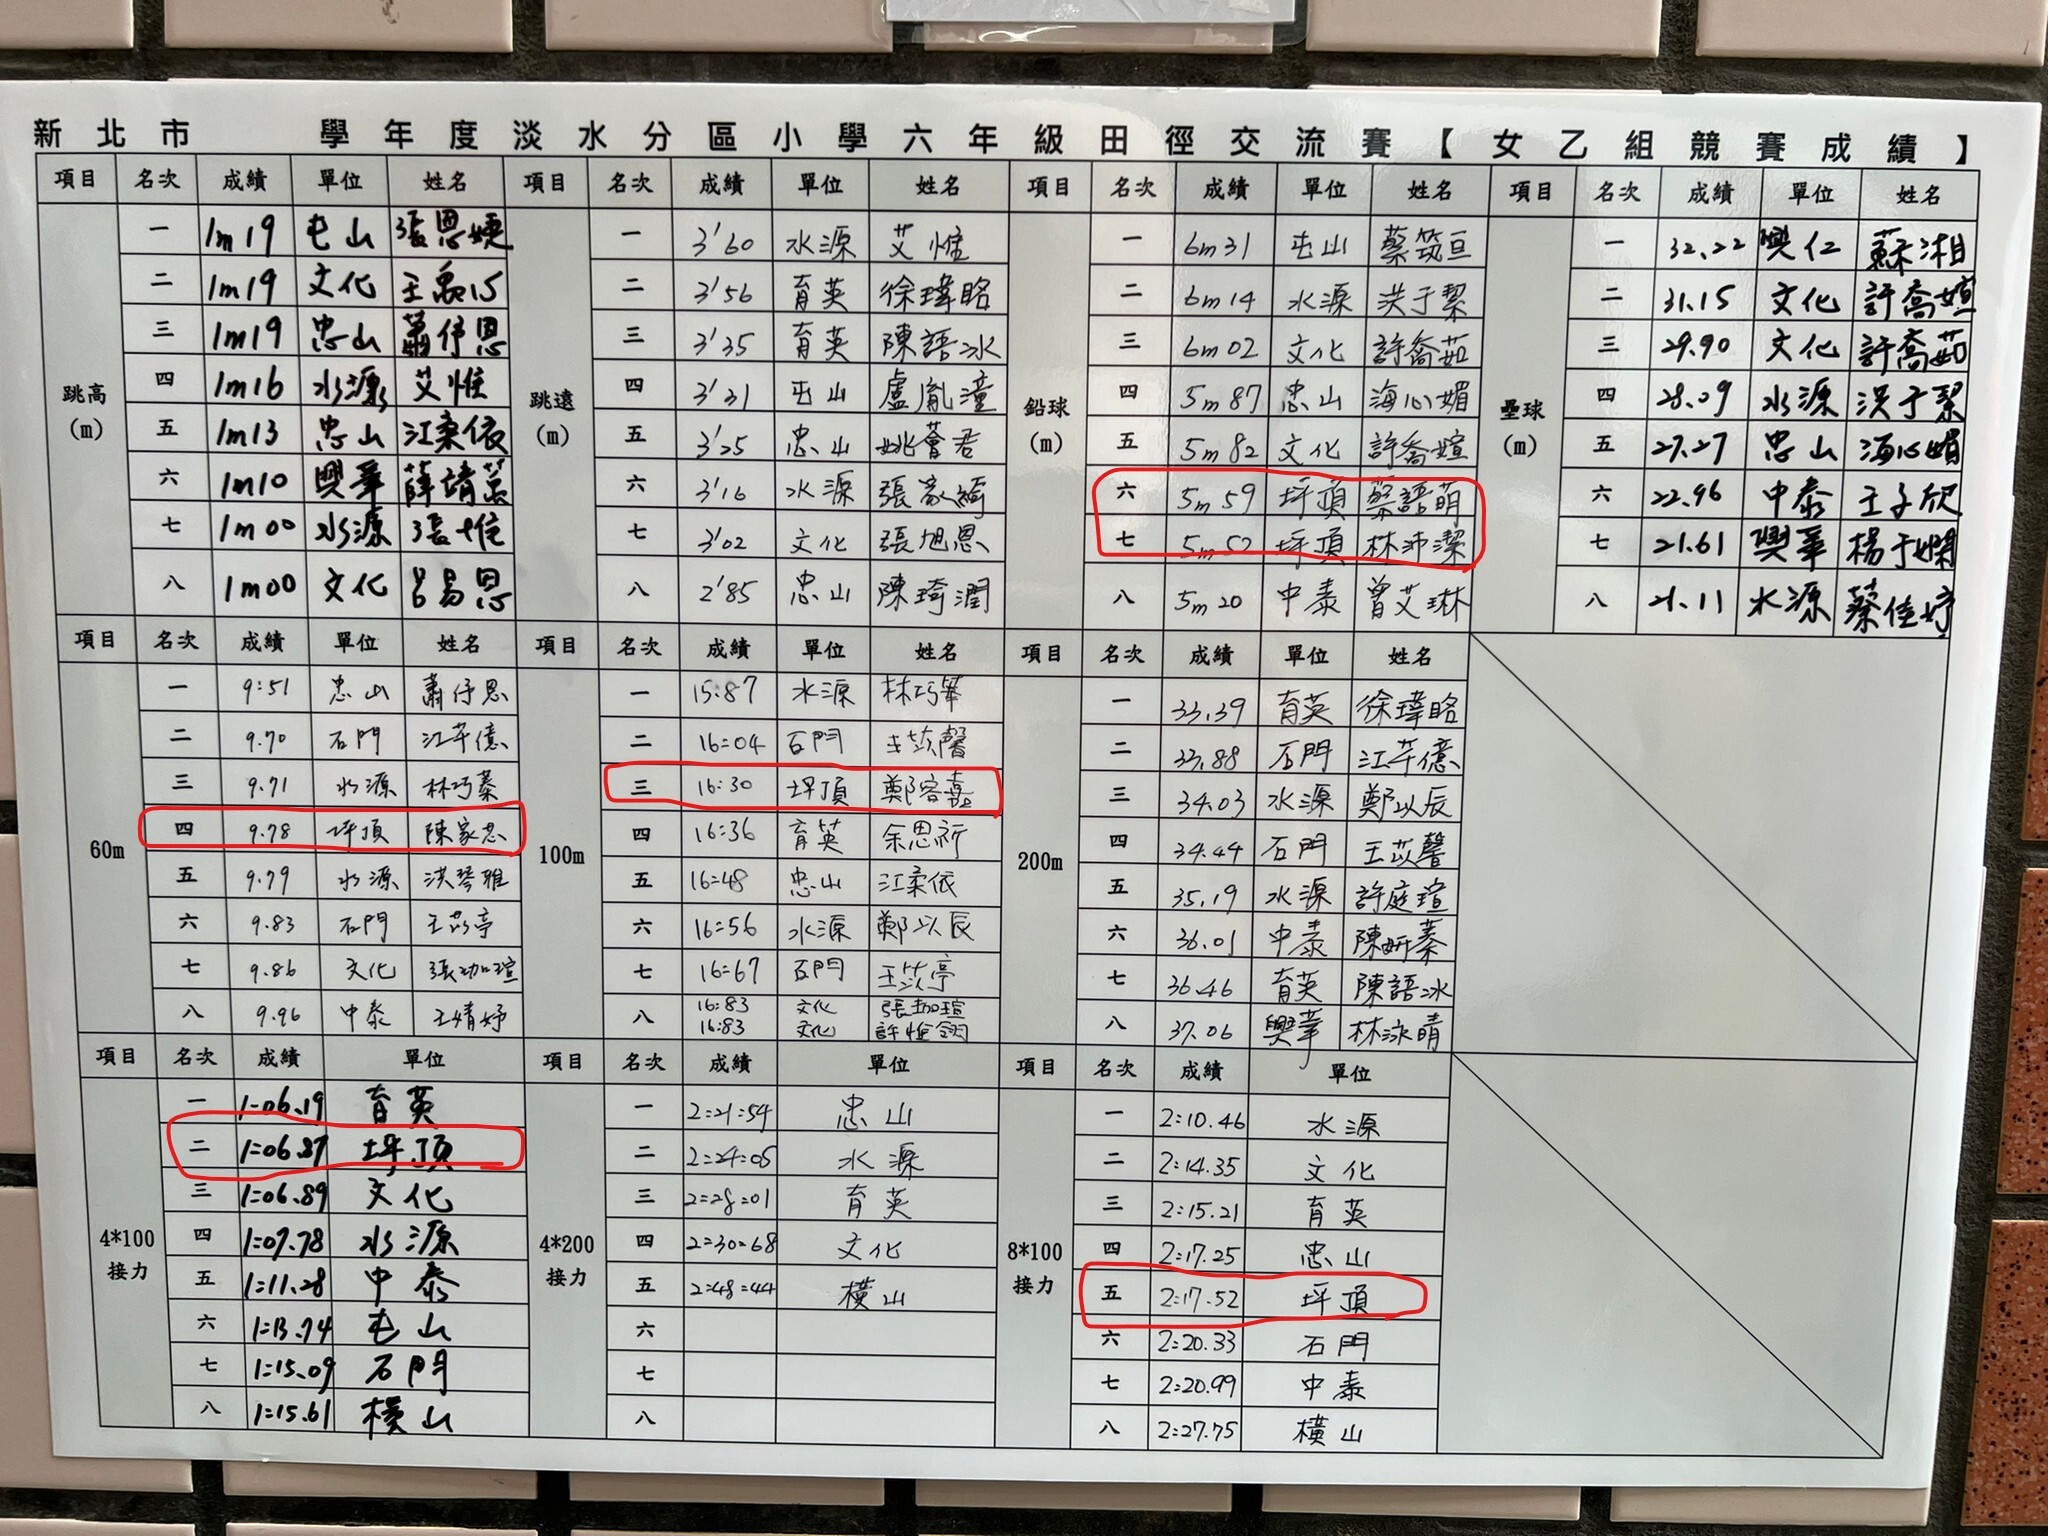 新北市 學年度淡水分區小學六年級田徑交流賽【女乙組競賽成績】
項目 名次 成績 單位 姓名 項目 名次 成績 單位 姓名 項目 名次 成績 單位 姓名 項目 名次 成績 單位 姓名
跳高(m) 一 1m19 屯山 張恩婕 跳遠(m) 一 3'60 水源 艾惟 鉛球(m) 一 6m31 屯山 蔡筑亘 壘球(m) 一 32.22 興仁 蘇湘
二 1m19 文化 王禹 二 3'56 育英 徐瑋晗 二 6m14 水源 洪于絜 二 31.15 文化 許喬媗
三 1m19 忠山 蕭伃恩 三 3'35 育英 陳語冰 三 6m02 文化 許喬茹 三 29.90 文化 許喬茹
四 1m16 水源 艾惟 四 3'31 屯山 盧胤潼 四 5m87 忠山 海心媚 四 28.09 水源 洪于絜
五 1m13 忠山 江柔依 五 3'25 忠山 姚薈君 五 5m82 文化 許喬媗 五 27.27 忠山 海心媚
六 1m10 興華 薛靖 六 3'16 水源 張家綺 六 5m59 坪頂 蔡語萌 六 22.96 中泰 王子欣
七 1m00 水源 張惟 七 3'02 文化 張旭恩 七 5m52 坪頂 林沛潔 七 21.61 興華 楊于嫻
八 1m00 文化 呂易恩 八 2'85 忠山 陳琦潤 八 5m20 中泰 曾艾琳 八 21.11 水源 蔡佳妤
項目 名次 成績 單位 姓名 項目 名次 成績 單位 姓名 項目 名次 成績 單位 姓名
60m 一 9:51 忠山 蕭伃恩 100m 一 15:87 水源 林巧蓁 200m 一 33.39 育英 徐瑋晗
二 9.70 石門 江芊億 二 16:04 石門 王苡馨 二 33.88 石門 江芊億
三 9.71 水源 林巧蓁 三 16:30 坪頂 鄭容嘉 三 34.03 水源 鄭以辰
四 9.78 坪頂 陳家恩 四 16:36 育英 余思祈 四 34.44 石門 王苡馨
五 9.79 水源 洪琴雅 五 16:48 忠山 江柔依 五 35.19 水源 許庭瑄
六 9.83 石門 王苡亭 六 16:56 水源 鄭以辰 六 36.01 中泰 陳妍蓁
七 9.86 文化 張珈瑄 七 16:67 石門 王苡亭 七 36.46 育英 陳語冰
八 9.96 中泰 王婧妤 八 16:83 文化 張珈瑄 八 37.06 興華 林泳晴
16:83 文化 許恒翎
項目 名次 成績 單位 項目 名次 成績 單位 項目 名次 成績 單位
4*100接力 一 1:06.19 育英 4*200接力 一 2:21:54 忠山 8*100接力 一 2:10.46 水源
二 1:06.87 坪頂 二 2:24:05 水源 二 2:14.35 文化
三 1:06.89 文化 三 2:28:01 育英 三 2:15.21 育英
四 1:07.78 水源 四 2:30:68 文化 四 2:17.25 忠山
五 1:11.28 中泰 五 2:48:44 橫山 五 2:17.52 坪頂
六 1:13.74 屯山 六 六 2:20.33 石門
七 1:15.09 石門 七 七 2:20.99 中泰
八 1:15.61 橫山 八 八 2:27.75 橫山